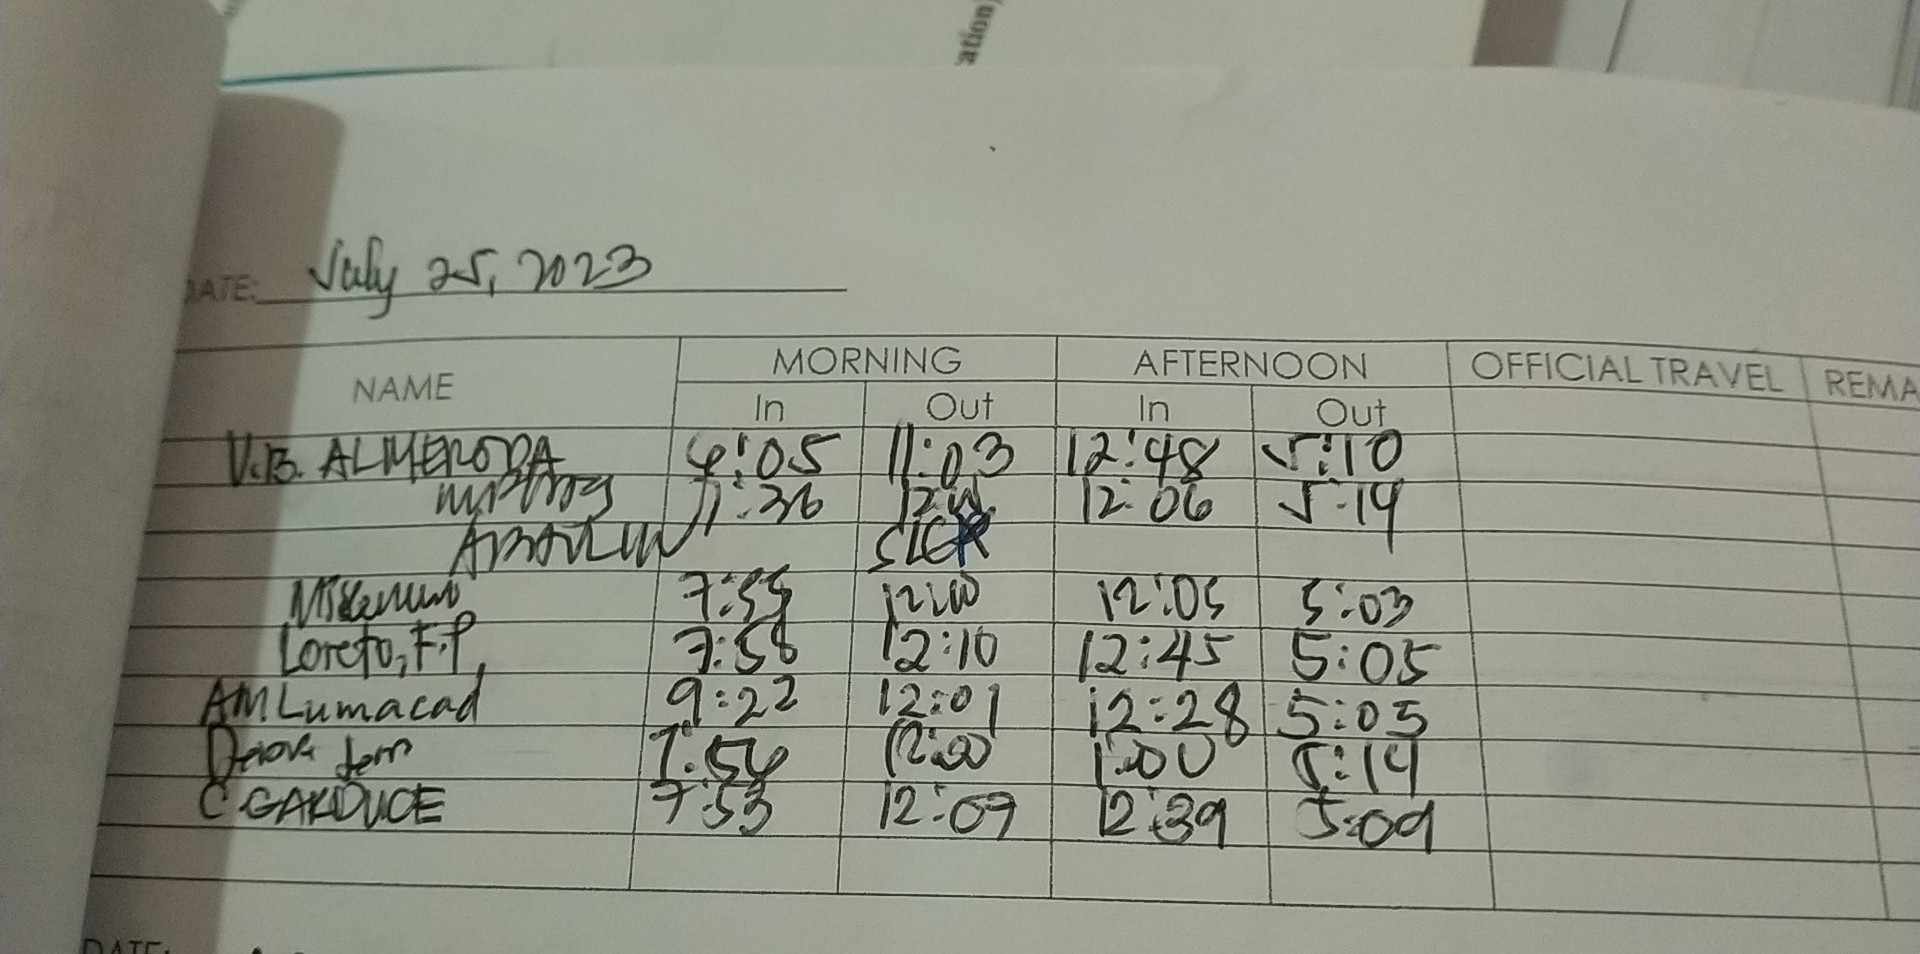 ation)
DATE: July 25, 2023
NAME MORNING AFTERNOON OFFICIAL TRAVEL REMA
In Out In Out
V.B. ALMERODA 6:05 11:03 12:48 5:10
7:36 12:06 5:19
SICK
7:55 12:00 12:05 5:03
Loreto, F.P. 7:58 12:10 12:45 5:05
AM Lumacad 9:22 12:01 12:28 5:05
7:56 12:00 1:00 5:14
C GARDUCE 7:53 12:09 12:39 5:09
DATE: